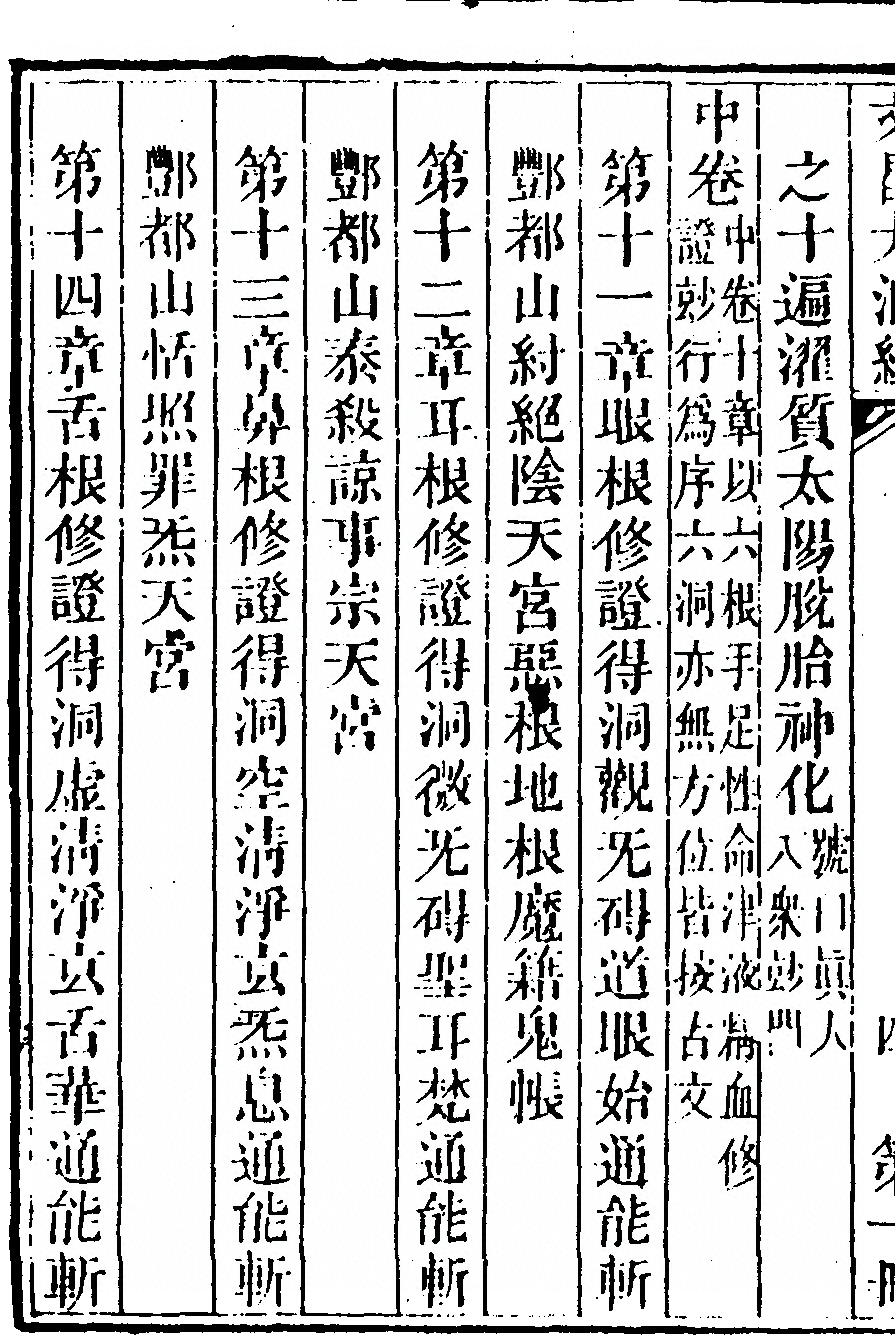 之十遍濯質太陽脫胎神化號曰眞人入衆玅門
中卷中卷十章以六根手足性命津液精血修證玅行爲序六洞亦無方位皆按古文
第十一章眼根修證得洞觀旡碍道眼始通能斬
酆都山紂絕陰天宮惡根地根魔籍鬼帳
第十二章耳根修證得洞微旡碍聖耳梵通能斬
酆都山泰殺諒事宗天宮
第十三章鼻根修證得洞空淸淨玄炁息通能斬
酆都山恬照罪炁天宮
第十四章舌根修證得洞虛淸淨玄舌華通能斬